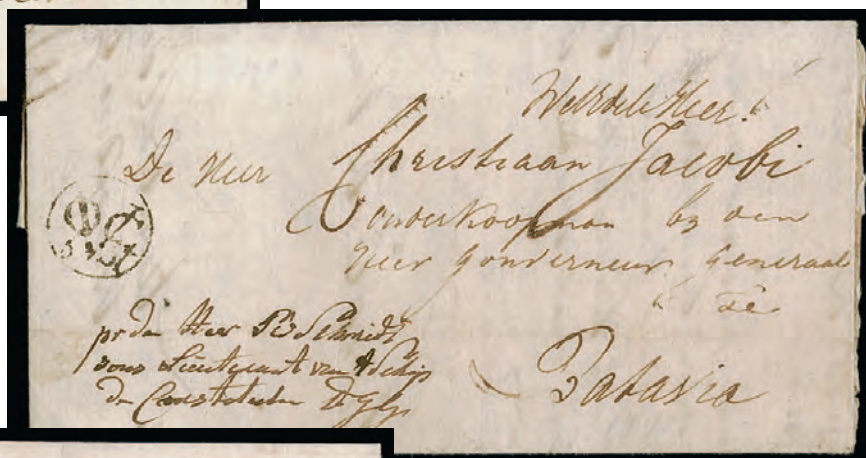 WelEdele Heer
De Heer Christiaan Jacobi
onderkoopman by den
Heer Gouverneur Generaal
te
Batavia
pr den Heer Schmidt
sous Lieutenant van t Schip
De